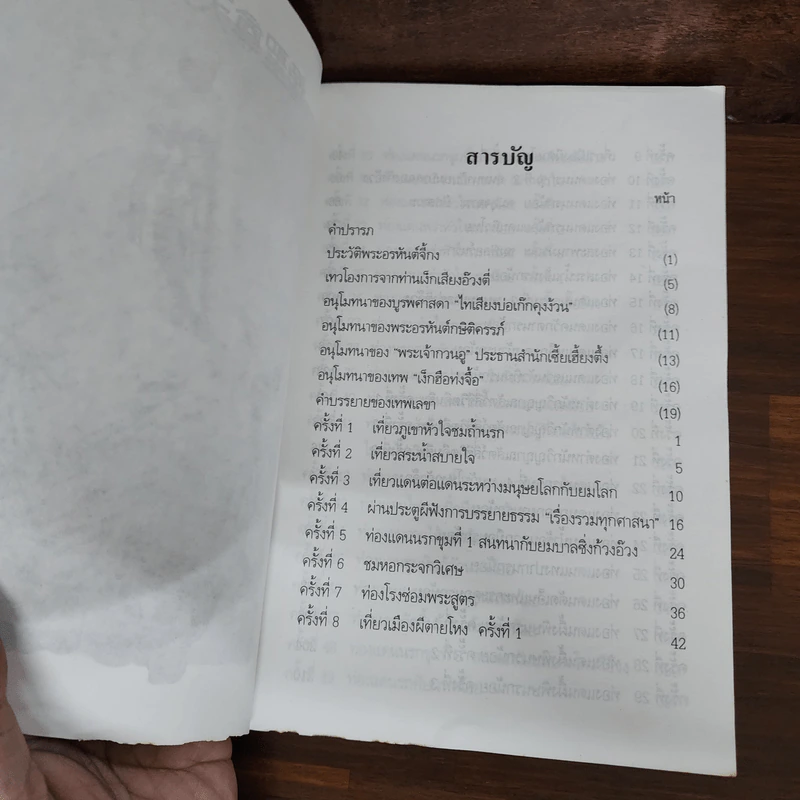 สารบัญ
หน้า
คำปรารภ
ประวัติพระอรหันต์จี้กง (1)
เทวโองการจากท่านเง็กเสียงอ๊วงตี่ (5)
อนุโมทนาของบูรพศาสดา "ไทเสียงบ่อเก๊กคุงง้วน" (8)
อนุโมทนาของพระอรหันต์กษิติครรภ์ (11)
อนุโมทนาของ "พระเจ้ากวนอู" ประธานสำนักเซี้ยเฮี้ยงตึ้ง (13)
อนุโมทนาของเทพ "เง็กฮือท่งจื้อ" (16)
คำบรรยายของเทพเลขา (19)
ครั้งที่ 1 เที่ยวภูเขาหัวใจชมถ้ำนรก 1
ครั้งที่ 2 เที่ยวสระน้ำสบายใจ 5
ครั้งที่ 3 เที่ยวแดนต่อแดนระหว่างมนุษยโลกกับยมโลก 10
ครั้งที่ 4 ผ่านประตูผีฟังการบรรยายธรรม "เรื่องรวมทุกศาสนา" 16
ครั้งที่ 5 ท่องแดนนรกขุมที่ 1 สนทนากับยมบาลซิ่งก้วงอ๊วง 24
ครั้งที่ 6 ชมหอกระจกวิเศษ 30
ครั้งที่ 7 ท่องโรงซ่อมพระสูตร 36
ครั้งที่ 8 เที่ยวเมืองผีตายโหง ครั้งที่ 1 42